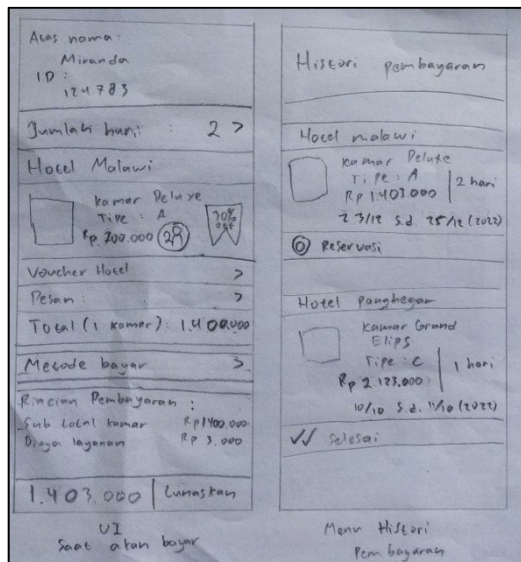 Atas nama:
Miranda
ID :
124783
Jumlah hari : 2 >
Hotel Malawi
Kamar Deluxe
Tipe : A
Rp. 700.000
off
Voucher Hotel >
Pesan : >
Total (1 kamar): 1.400.000
Metode bayar >
Rincian Pembayaran :
Sub total kamar Rp 1400.000
Biaya layanan Rp 3.000
1.403.000 | Lunaskan
UI
Saat akan bayar
Histori pembayaran
Hotel malawi
Kamar Deluxe
Tipe : A
Rp 1.403.000 | 2 hari
23/12 s.d. 25/12 (2022)
Reservasi
Hotel panghegar
Kamar Grand
Elips
Tipe : C
Rp 2.123.000 | 1 hari
10/10 s.d. 11/10 (2022)
Selesai
Menu Histori
Pembayaran